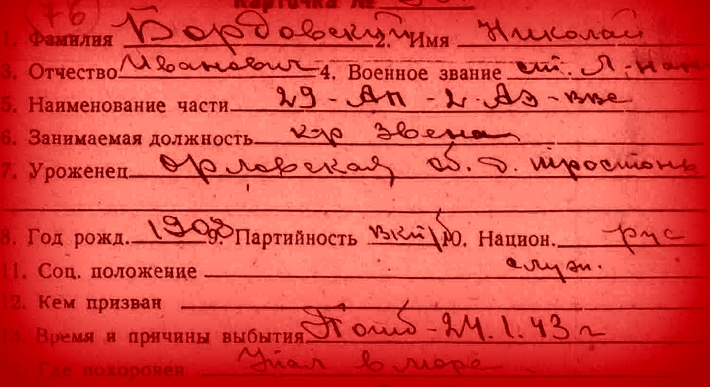 (76)
Карточка №
1. Фамилия Бордовский 2. Имя Николай
3. Отчество Иванович 4. Военное звание ст. л-нант
5. Наименование части 29-АП-2-АЭ-ВВС
6. Занимаемая должность к-р звена
7. Уроженец Орловская об. д. Тростонь
8. Год рожд. 1908 9. Партийность ВКП/б 10. Национ. рус
11. Соц. положение служ.
12. Кем призван
13. Время и причины выбытия Погиб-24.1.43 г
Где похоронен Упал в море